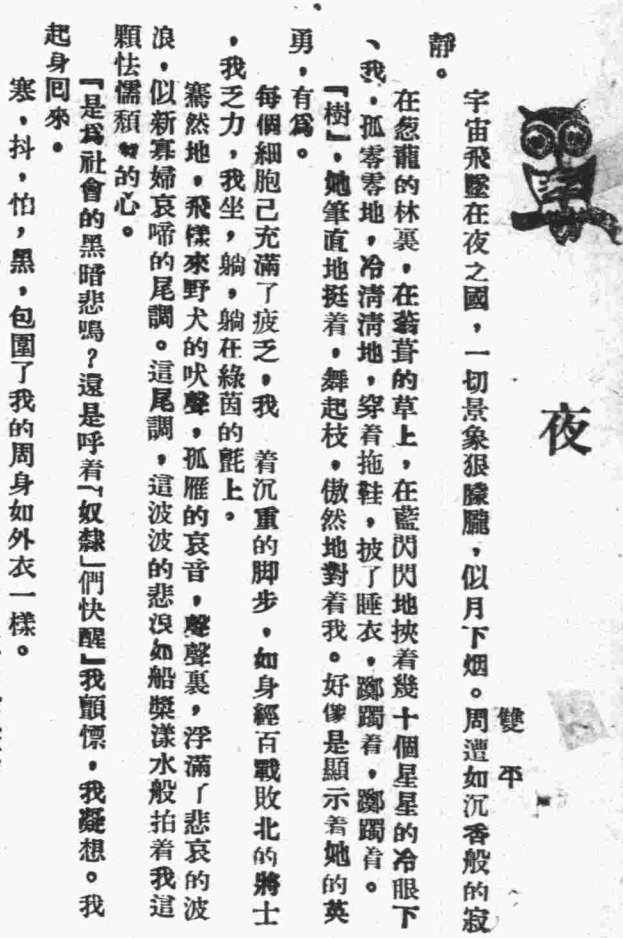 夜
雙平
宇宙飛墜在夜之國，一切景象狠朦朧，似月下烟。周遭如沉香般的寂
靜。
在葱蘢的林裏，在蓊葺的草上，在藍閃閃地挾着幾十個星星的冷眼下
、我，孤零零地，冷清清地，穿着拖鞋，披了睡衣，躑躅着，躑躅着。
『樹』，她筆直地挺着，舞起枝，傲然地對着我。好像是顯示着她的英
勇，有爲。
每個細胞已充滿了疲乏，我 着沉重的脚步，如身經百戰敗北的將士
，我乏力，我坐，躺，躺在綠茵的氈上。
驀然地，飛樣來野犬的吠聲，孤雁的哀音，聲聲裏，浮滿了悲哀的波
浪，似新寡婦哀啼的尾調。這尾調，這波波的悲浪如船槳漾水般拍着我這
顆怯懦頹 的心。
『是爲社會的黑暗悲鳴？還是呼着「奴隸」們快醒』我顫慄，我凝想。我
起身回來，
寒，抖，怕，黑，包圍了我的周身如外衣一樣。